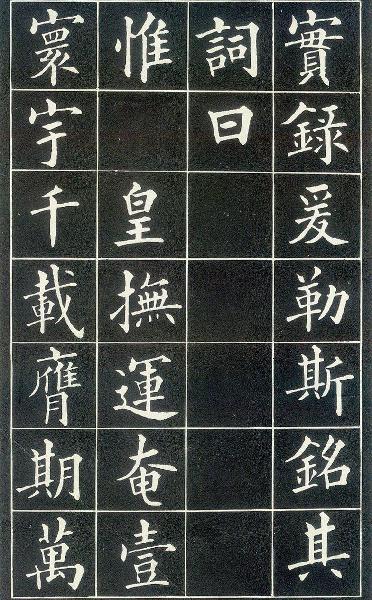 實錄爰勒斯銘其
詞曰
惟 皇撫運奄壹
寰宇千載膺期萬